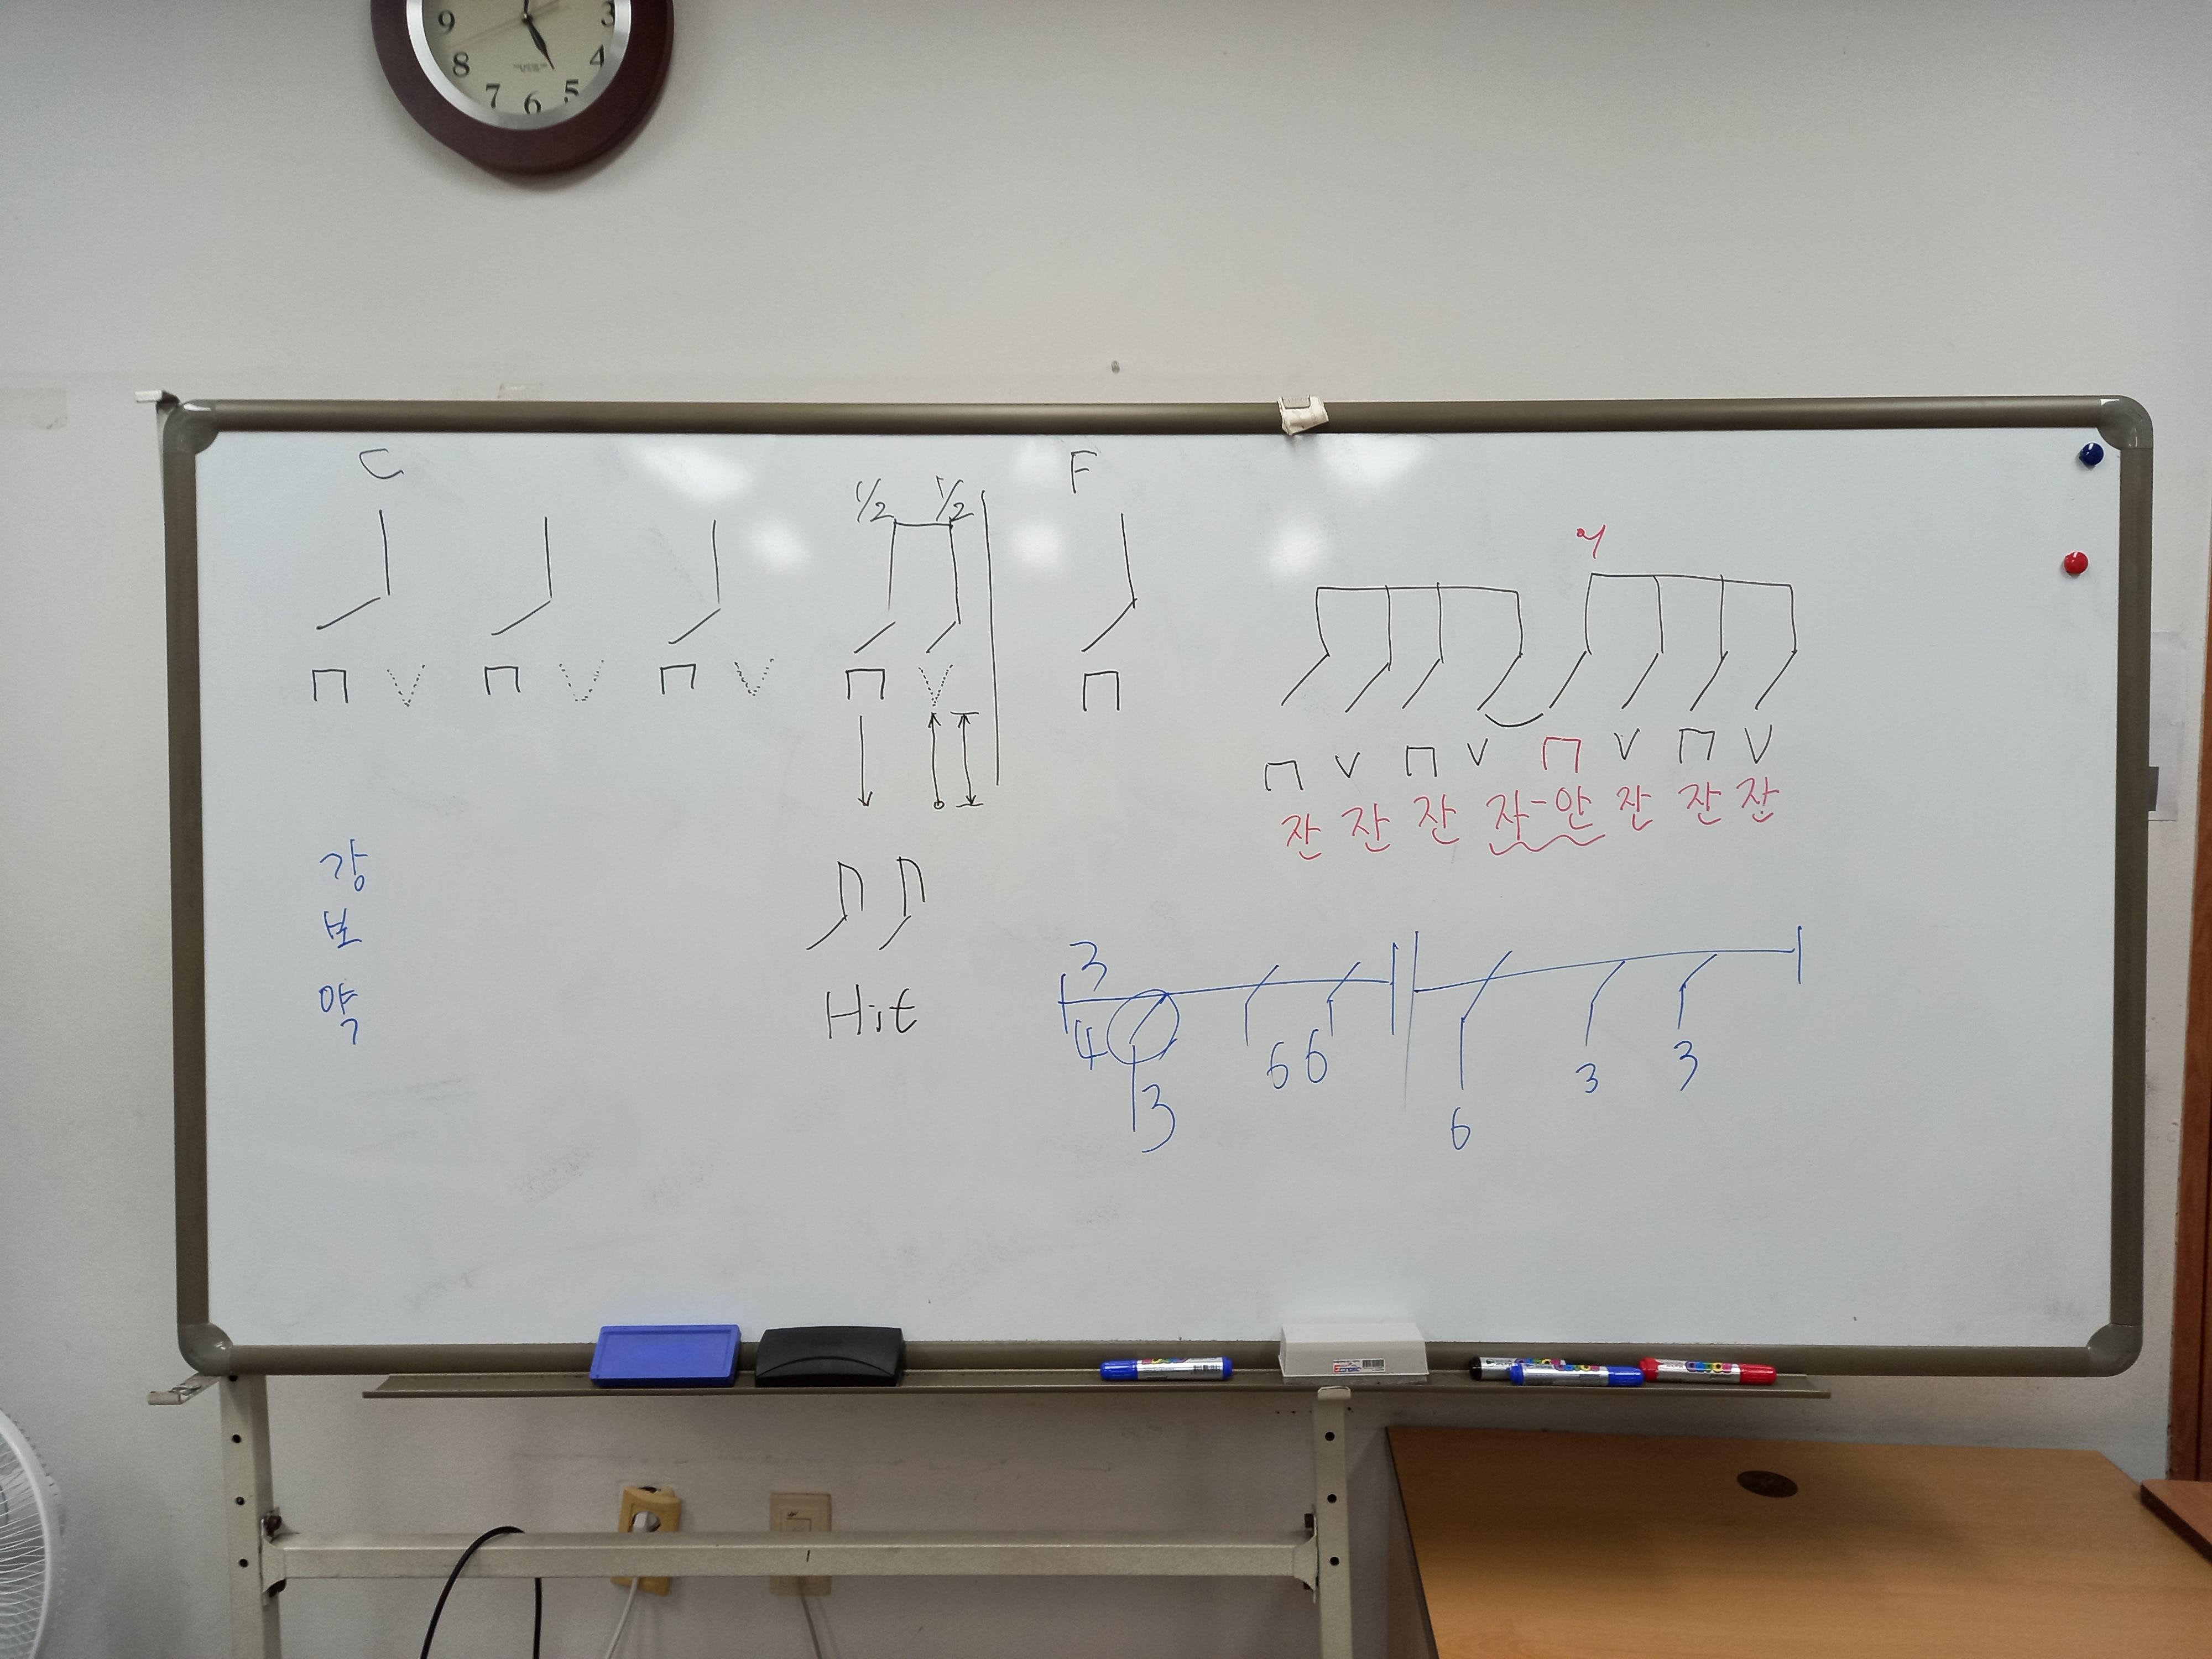 9 3
8 4
7 6 5
C F
1/2 1/2
V V V V
V V V V
잔 잔 잔 자-안 잔 잔 잔
강
보
약
Hit
3
4
3 6 6 6 3 3